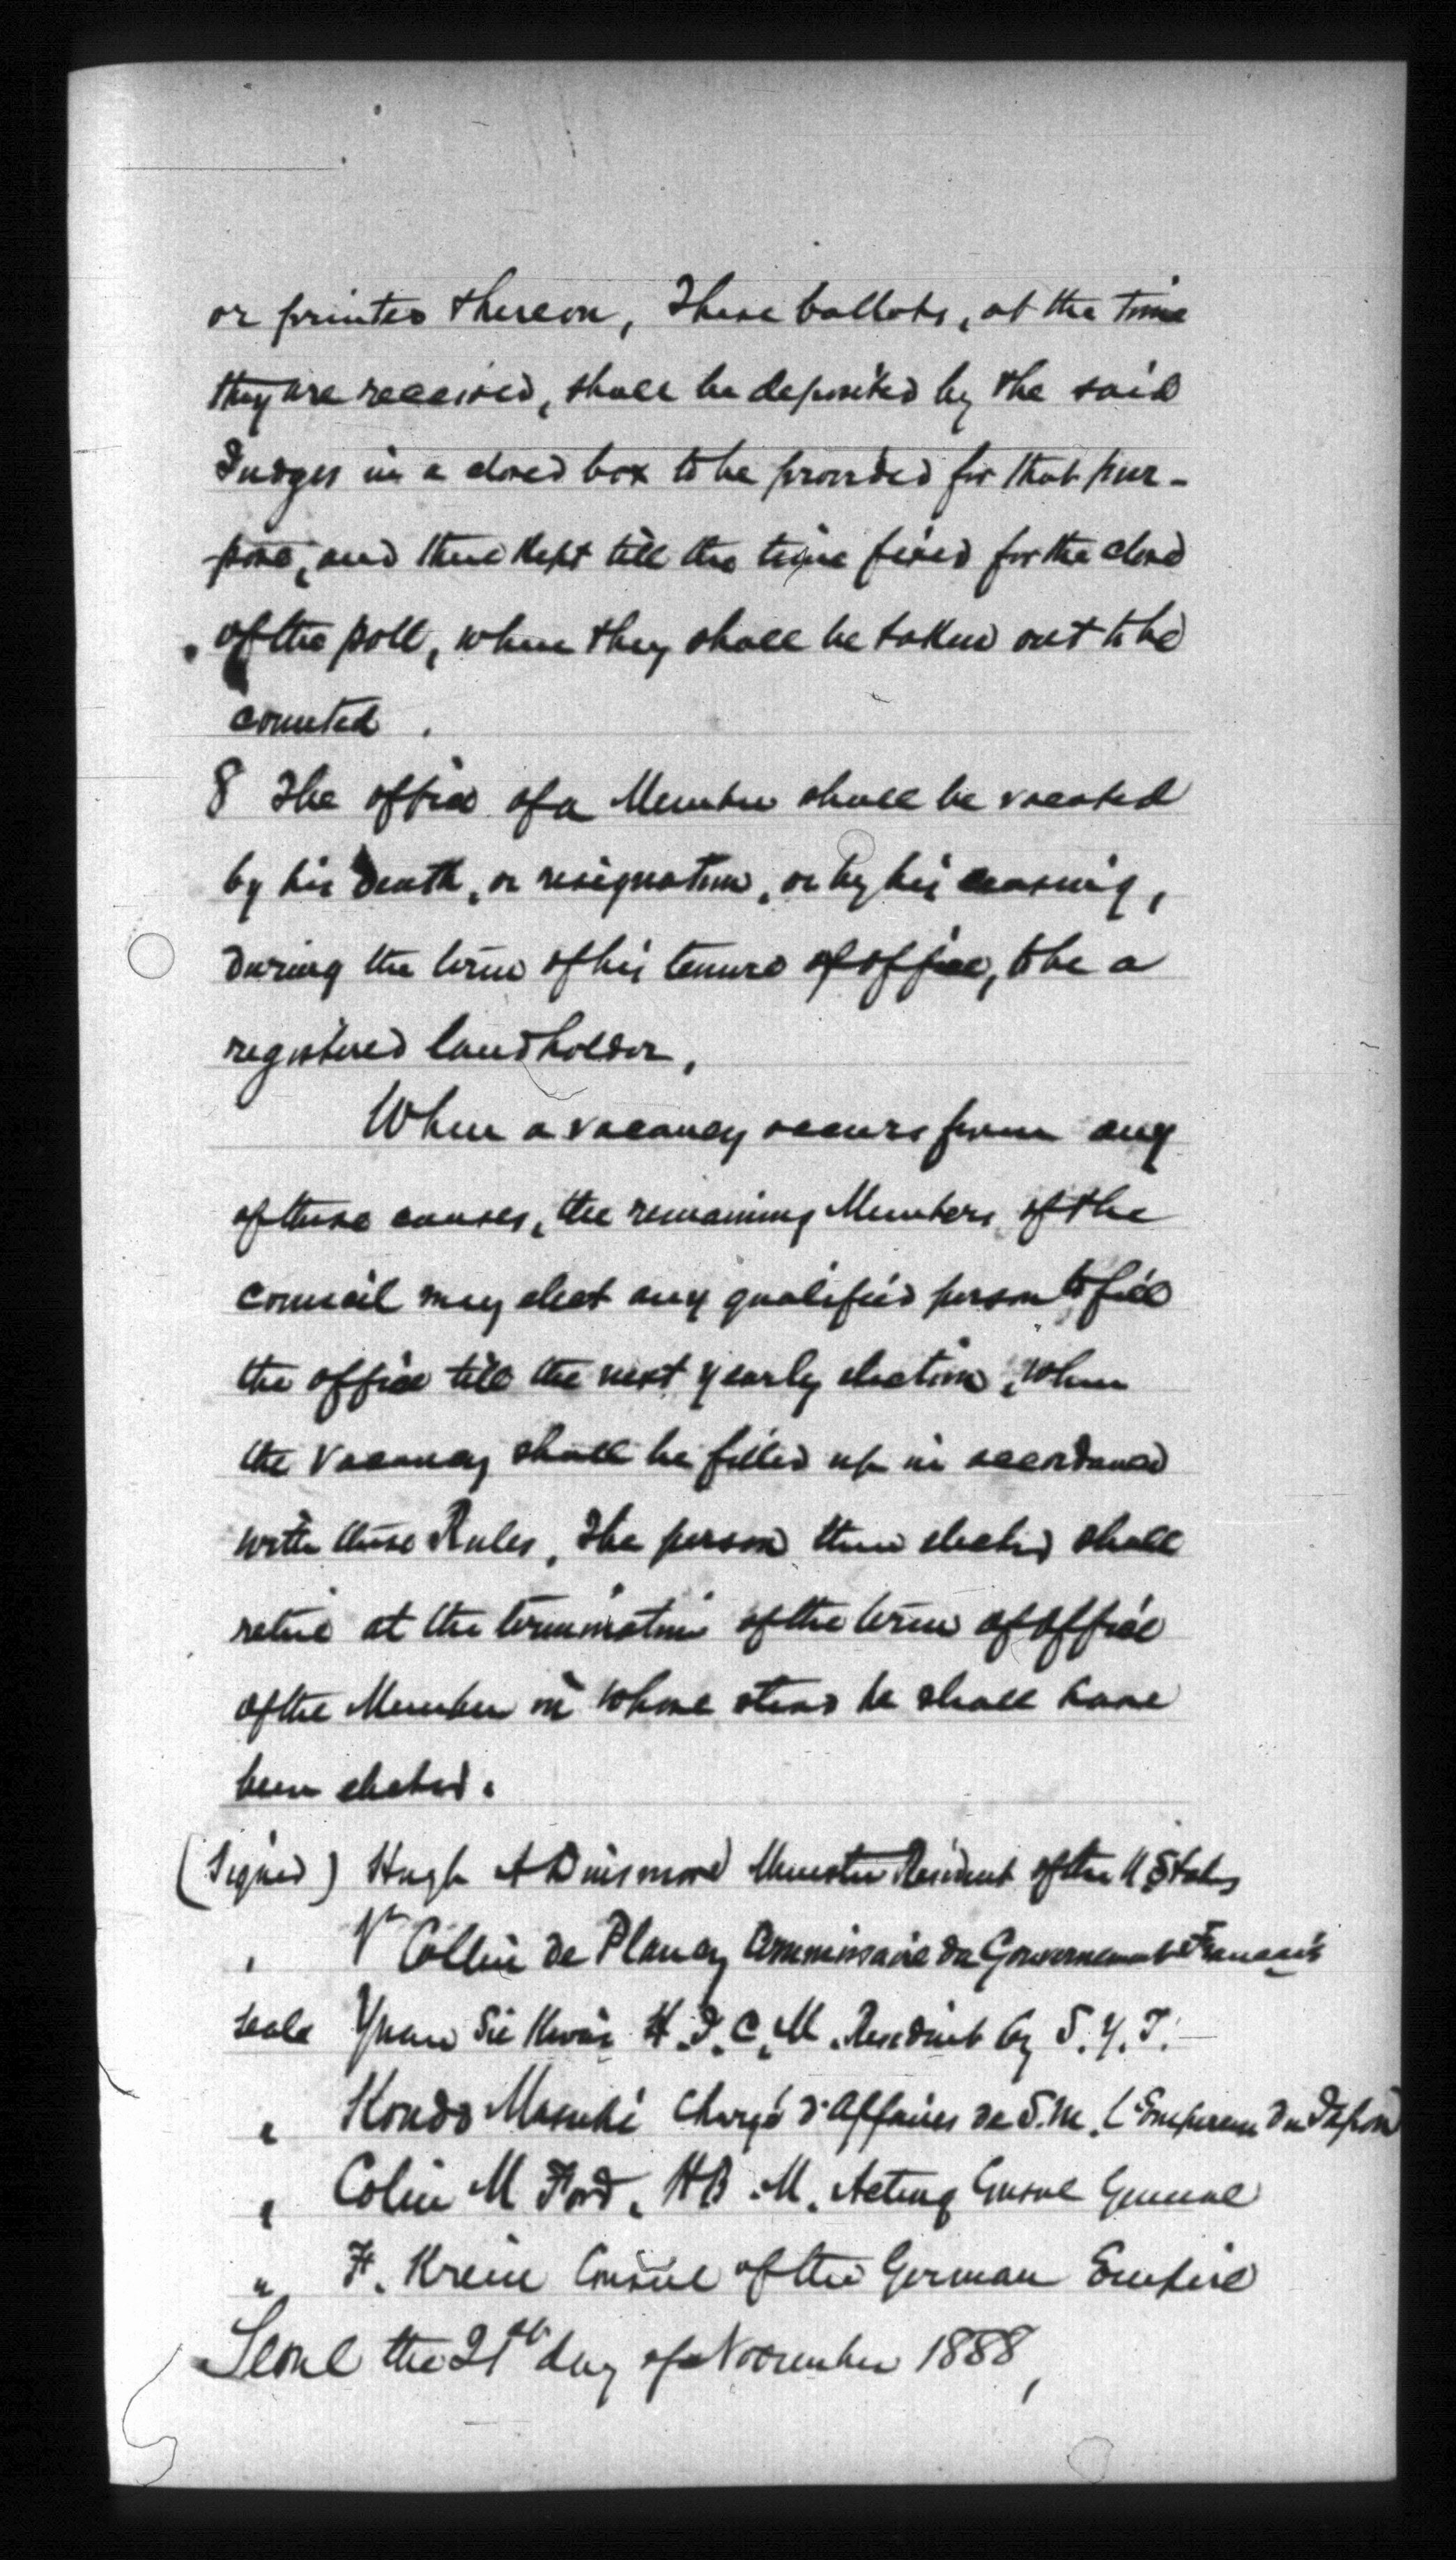 or printed thereon, These ballots, at the time
they are received, shall be deposited by the said
Judges in a closed box to be provided for that pur-
pose, and there kept till the time fixed for the close
of the poll, when they shall be taken out to be
counted.
8 The office of a Member shall be vacated
by his Death, or resignation, or by his ceasing,
during the term of his tenure of office, to be a
registered landholder,
When a vacancy occurs from any
of these causes, the remaining Members of the
council may elect any qualified person to fill
the office till the next yearly election, when
the vacancy shall be filled up in accordance
with these Rules, The person then elected shall
retire at the termination of the term of office
of the Member in whose stead he shall have
been elected.
(Signed) Hugh A Dinsmore Minister Resident of the U States
" Vr Collin de Plancy Commissaire du Gouvernement Français
Yuan Sie Kwai H. I. C. M. Resident by S. Y. T.
" Kondo Masuki Chargé d'Affaires de S.M. l'Empereur du Japon
" Colin M Ford, H B. M. Acting Consul General
" F. Krein Consul of the German Empire
Seoul the 21th day of November 1888,